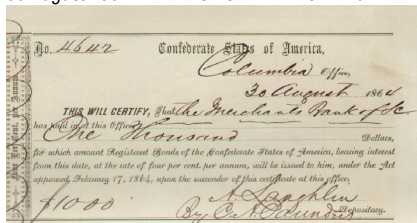 No. 4642 Confederate States of America,
Columbia Office,
30 August 1864
THIS WILL CERTIFY, That the Merchants Bank of SC
has paid in at this Office One Thousand Dollars,
for which amount Registered Bonds of the Confederate States of America, bearing interest
from this date, at the rate of four per cent. per annum, will be issued to him, under the Act
approved February 17, 1864, upon the surrender of this certificate at this office.
$1000 A. Laughlin
By C. A. Depositary.